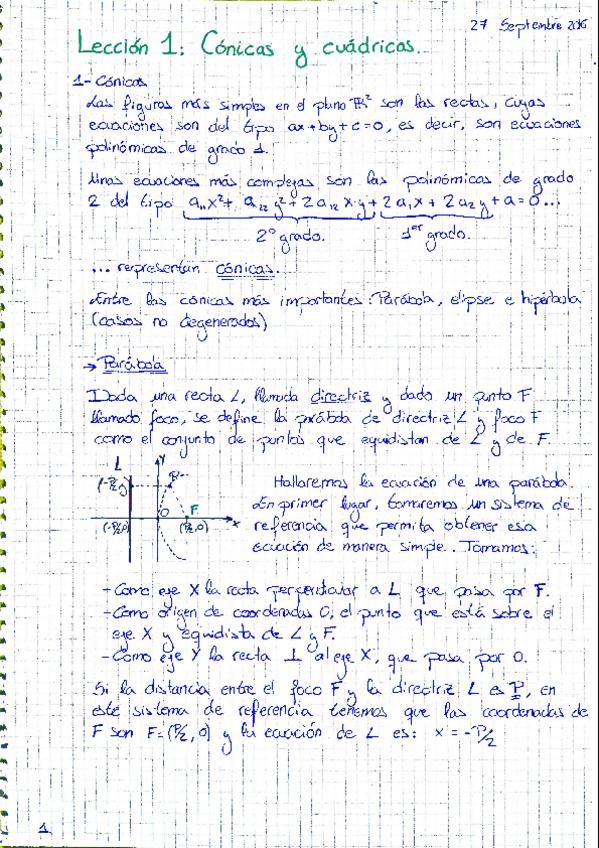 27 Septiembre 2016
Lección 1: Cónicas y cuádricas.
1- Cónicas
Las figuras más simples en el plano ℝ² son las rectas, cuyas
ecuaciones son del tipo ax+by+c=0, es decir, son ecuaciones
polinómicas de grado 1.
Unas ecuaciones más complejas son las polinómicas de grado
2 del tipo a₁₁x²+ a₂₂y²+2a₁₂x·y+2a₁x+2a₂y+a=0...
2º grado. 1er grado.
... representan cónicas.
Entre las cónicas más importantes: Parábola, elipse e hipérbola
(casos no degenerados)
→ Parábola
Dada una recta L, llamada directriz y dado un punto F
llamado foco, se define la parábola de directriz L y foco F
como el conjunto de puntos que equidistan de L y de F.
L Y
(-P/2,y) P
O F
(-P/2,0) (P/2,0) x
Hallaremos la ecuación de una parábola.
En primer lugar, tomaremos un sistema de
referencia que permita obtener esa
ecuación de manera simple. Tomamos:
- Como eje X la recta perpendicular a L que pasa por F.
- Como origen de coordenadas O, el punto que está sobre el
eje X y equidista de L y F.
- Como eje Y la recta ⊥ al eje X, que pasa por O.
Si la distancia entre el foco F y la directriz L es P, en
este sistema de referencia tenemos que las coordenadas de
F son F=(P/2,0) y la ecuación de L es: x=-P/2
1